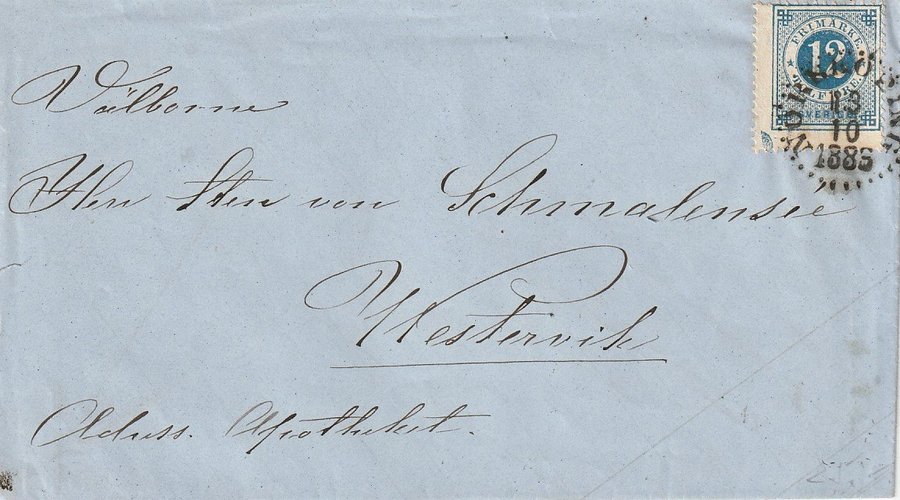 FRIMÄRKE
12
TOLF ÖRE
SVERIGE
10
1886
Välborne
Herr Sten von Schmalensee
Westervik
Adress. Apotheket.